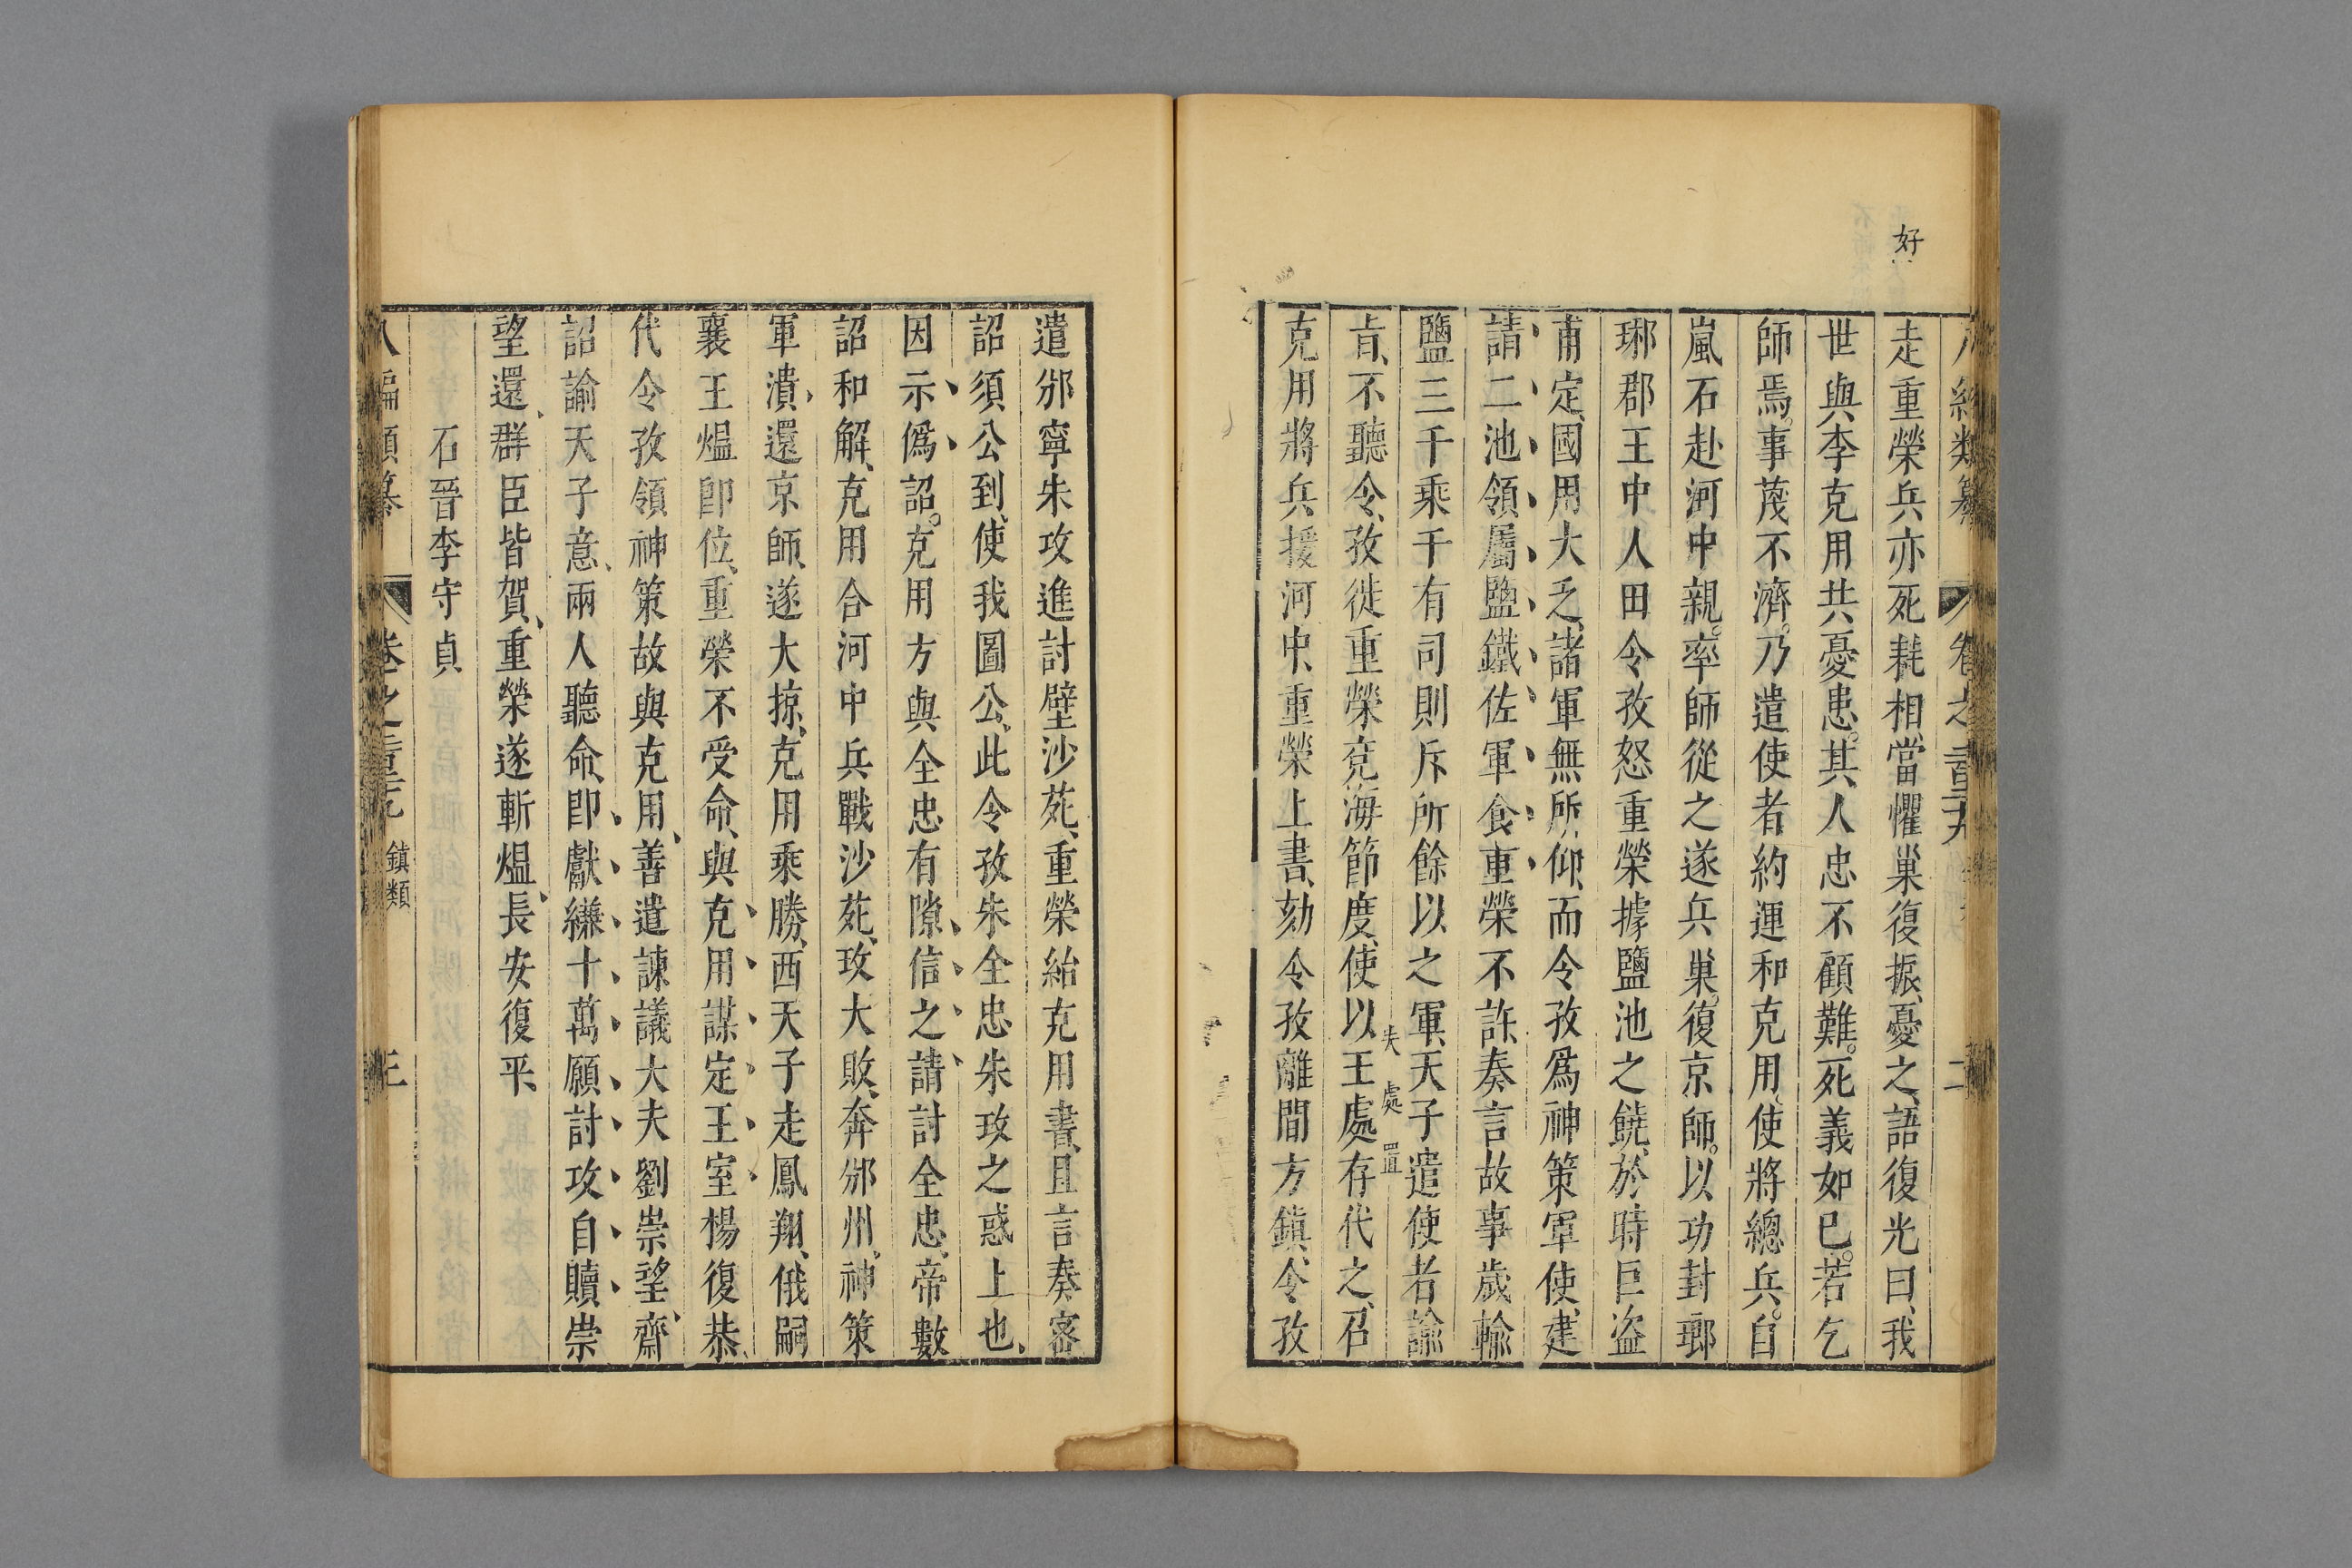 好
走重榮兵亦死耗相當懼巢復振、憂之、語復光曰、我
世與李克用共憂患。其人忠不顧難。死義如已。若乞
師焉。事蔑不濟。乃遣使者約連和克用、使將總兵。自
嵐石赴河中親。率師從之遂兵巢。復京師。以功封瑯
琊郡王中人田令孜怒重榮據鹽池之饒、於時巨盜
甫定、國用大乏、諸軍無所仰、而令孜爲神策軍使、建
請二池領屬鹽鐵、佐軍食重榮不許、奏言故事歲輸
鹽三千乘千有司則斥所餘以之軍、天子遣使者諭
失處置
旨、不聽令、孜徙重榮兗海節度、使以王處存代之、召
克用將兵援河中、重榮上書、劾令孜離間方鎮、令孜
遣邠寧朱攻進討壁沙苑、重榮紿克用書、且言奏密
詔須公到、使我圖公、此令孜朱全忠朱攻之惑上也、
因示僞詔。克用方與全忠有隙信之請討全忠、帝數
詔和解、克用合河中兵戰沙苑、攻大敗、奔邠州、神策
軍潰、還京師、遂大掠、克用乘勝、西天子走鳳翔、俄嗣
襄王熅卽位、重榮不受命、與克用謀定王室楊復恭、
代令孜領神策故與克用、善遣諫議大夫劉崇望、齎
詔諭天子意、兩人聽命、卽獻縑十萬願討攻自贖崇
望還、群臣皆賀、重榮遂斬熅、長安復平、
石晉李守貞
卷之
鎮類